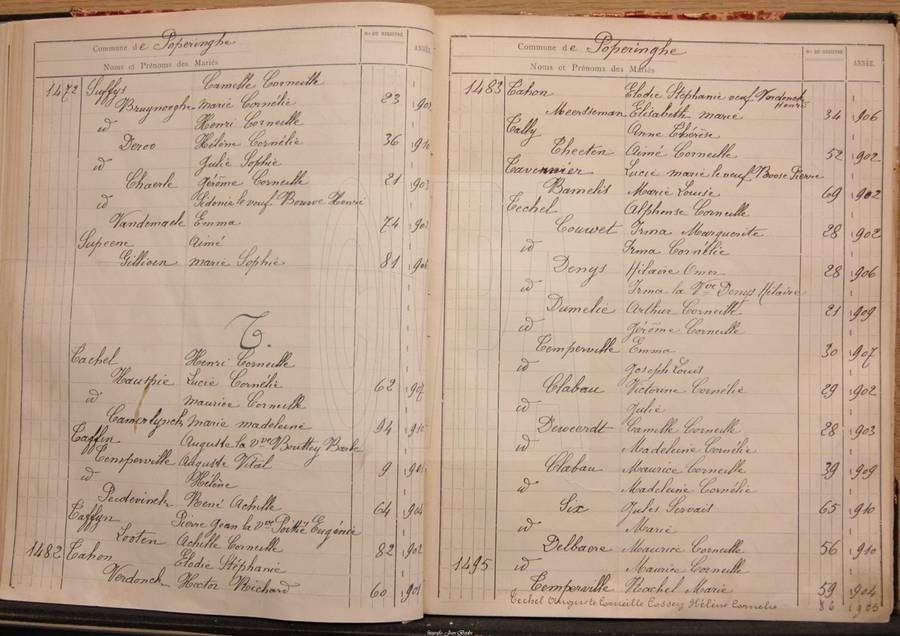 Commune de Poperinghe
Nos DU REGISTRE
ANNÉE
Noms et Prénoms des Mariés
1472 Suffys Camille Corneille
Bruynooghe Marie Cornélie 23
id Henri Corneille
Deroo Hélène Cornélie 36 1910
id Julie Sophie
Chaerle Jérôme Corneille 21
id Sidonie le veuf Bouvve Henri
Vandemaele Emma 74
Supeene Aimé
Gillioen Marie Sophie 81
T.
Tachel Henri Corneille
Hautpie Lucie Cornélie 62 1902
id Maurice Corneille
Camerlynck Marie Madeleine 94 1910
Taffin Auguste la vve Bouttey Barbe
Temperville Auguste Vital 9
id Hélène
Peudevinck René Achille 64 1904
Taffyn Pierre Jean la vve Eugénie
Looten Achille Corneille 82 1902
1482 Tahon Elodie Stéphanie
Verdonck Hector Richard 60 1901
Commune de Poperinghe
Nos DU REGISTRE
ANNÉE.
Noms et Prénoms des Mariés
1483 Tahon Elodie Stéphanie veuf Verdonck Henri
Meersseman Elisabeth Marie 34 1906
Tally Anne Thérèse
Checten Aimé Corneille 52 1902
Tavernier Lucie Marie le veuf Boose Pierre
Bamelis Marie Louise 69 1902
Techel Alphonse Corneille
Couwet Irma Marguerite 28 1902
id Irma Cornélie
Denys Hilaire Omer 28 1906
id Irma la Vve Denys Hilaire
Dumelie Arthur Corneille 21 1909
id Jérôme Corneille
Temperville Emma 30 1907
id Joseph Louis
Clabau Victorine Cornélie 29 1902
id Julie
Deweerdt Camille Corneille 28 1903
id Madeleine Cornélie
Clabau Maurice Corneille 39 1909
id Madeleine Cornélie
Six Jules Servais 65 1910
id Marie
Delbaere Maurice Corneille 56 1910
1495 id Maurice Corneille
Temperville Rachel Marie 59 1904
Techel Auguste Corneille Cossey Hélène Cornélie 86 1905